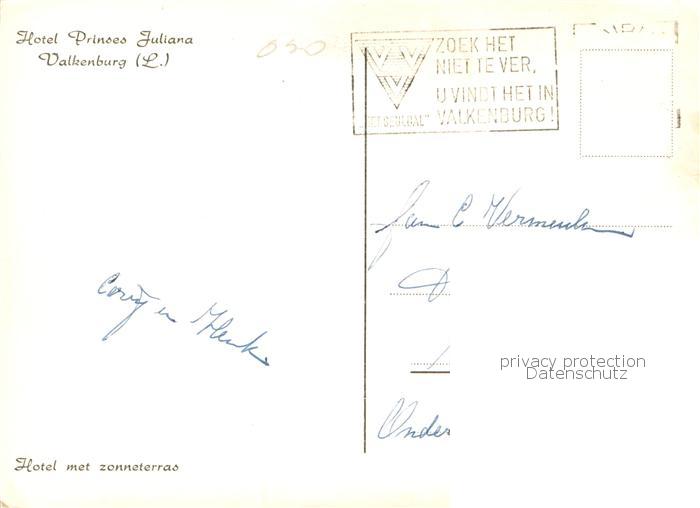 Hotel Prinses Juliana
Valkenburg (L.)
ZOEK HET
NIET TE VER,
U VINDT HET IN
VALKENBURG!
"HET GEULDAL"
Fam C Vermeulen
D
privacy protection
Datenschutz
Corry en Henk
Onder
Hotel met zonneterras